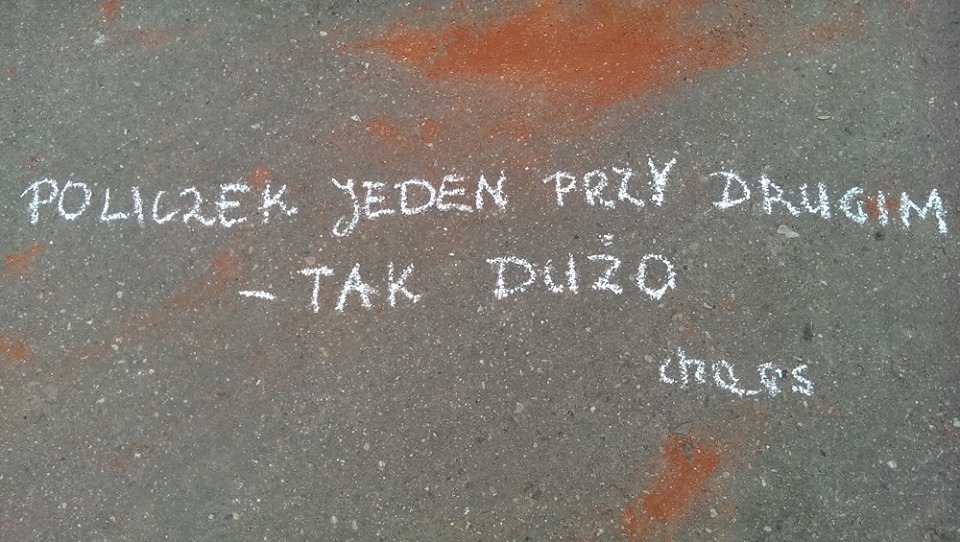 POLICZEK JEDEN PRZY DRUGIM
- TAK DUŻO
chaos